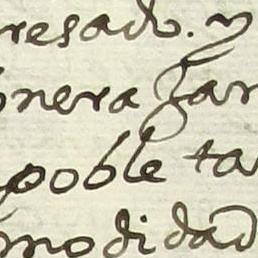 resado. y
onera
poble ta
modidad